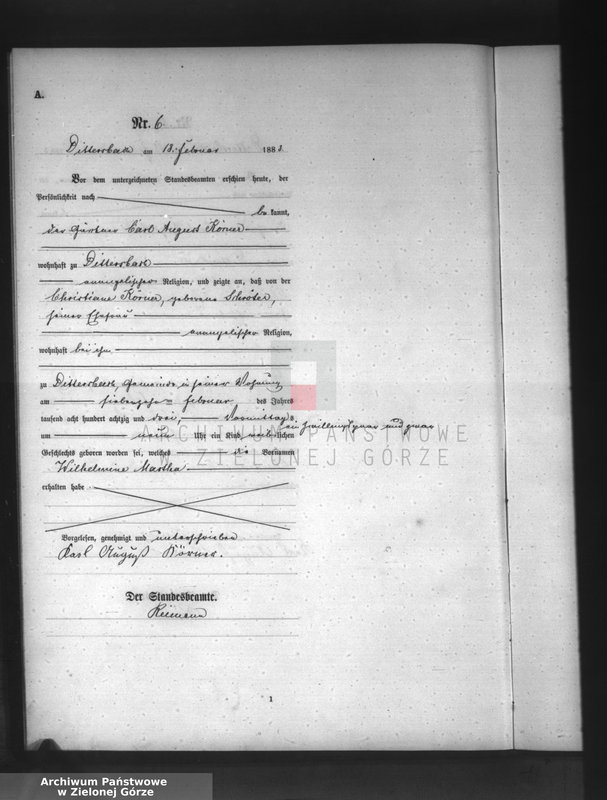 A.
Nr. 6
Dittersbach am 18. Februar 1883.
Vor dem unterzeichneten Standesbeamten erschien heute, der
Persönlichkeit nach
be kannt,
der Gärtner Carl August Körner
wohnhaft zu Dittersbach
evangelischer Religion, und zeigte an, daß von der
Christiane Körner, geborene Schröter,
seiner Ehefrau
evangelischer Religion,
wohnhaft bei ihm
zu Dittersbach, Gemeinde, in seiner Wohnung
am siebenzehn = Februar des Jahres
tausend acht hundert achtzig und drei, Vormittags
um neun Uhr ein Kind weib lichen
ein Zwillingspaar und zwar
Geschlechts geboren worden sei, welches die Vornamen
Wilhelmine Martha
erhalten habe
Vorgelesen, genehmigt und unterschrieben
Karl August Körner.
Der Standesbeamte.
Reimann
1
ARCHIWUM PAŃSTWOWE
W ZIELONEJ GÓRZE
Archiwum Państwowe
w Zielonej Górze